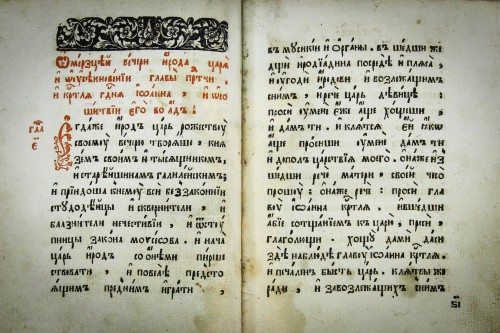 Ѡмерзцей вечери ирода, царѧ
и ѡꙋсѣкновенїи главы прⷣтчи,
и крⷭтлѧ гдⷭнѧ іѡанна, и ѡ со
шествїи єго во адъ:
гла
є
Егдаже иродъ царь рожествоу
своемоу вечерю творѧше, кнѧ
земъ своимъ и тысѧщникомъ,
и старѣишинамъ галилеискимъ;
и прїидоша кнемоу вси беззаконнїи
стоудодѣйцы и сквернители, и
блазнители нечестивїи, и ѿстоу
пницы закона моисеова. и нача
царь иродъ сѡнѣми пирше
ствовати, и повелѣ предсто
ѧщимъ предним играти,
въ моусикїи и органы. въшедши же
дщи иродїадина посредѣ и плѧса,
и оугоди иродови и возлежащим
снимъ, и рече царь дѣвице:
проси оумене єже аще хощеши,
и дамъ ти. и клѧтсѧ єй ꙗкѡ
аще просиши оумене дамъ ти
и дополъ царствїа моего. онаже из
шедши рече матери, своей что
прошоу; онаже рече: проси гла
воу іоанна крⷭтлѧ ившедши
абїе сотщанїемъ къ царю, проси,
глаголющи. хощоу дами даси
здѣ наблюдѣ главоу іѡанна крⷭтлѧ.
и печаленъ бысть царь. клѧтвы же
ради, и завозлежащих снимъ
ѕі